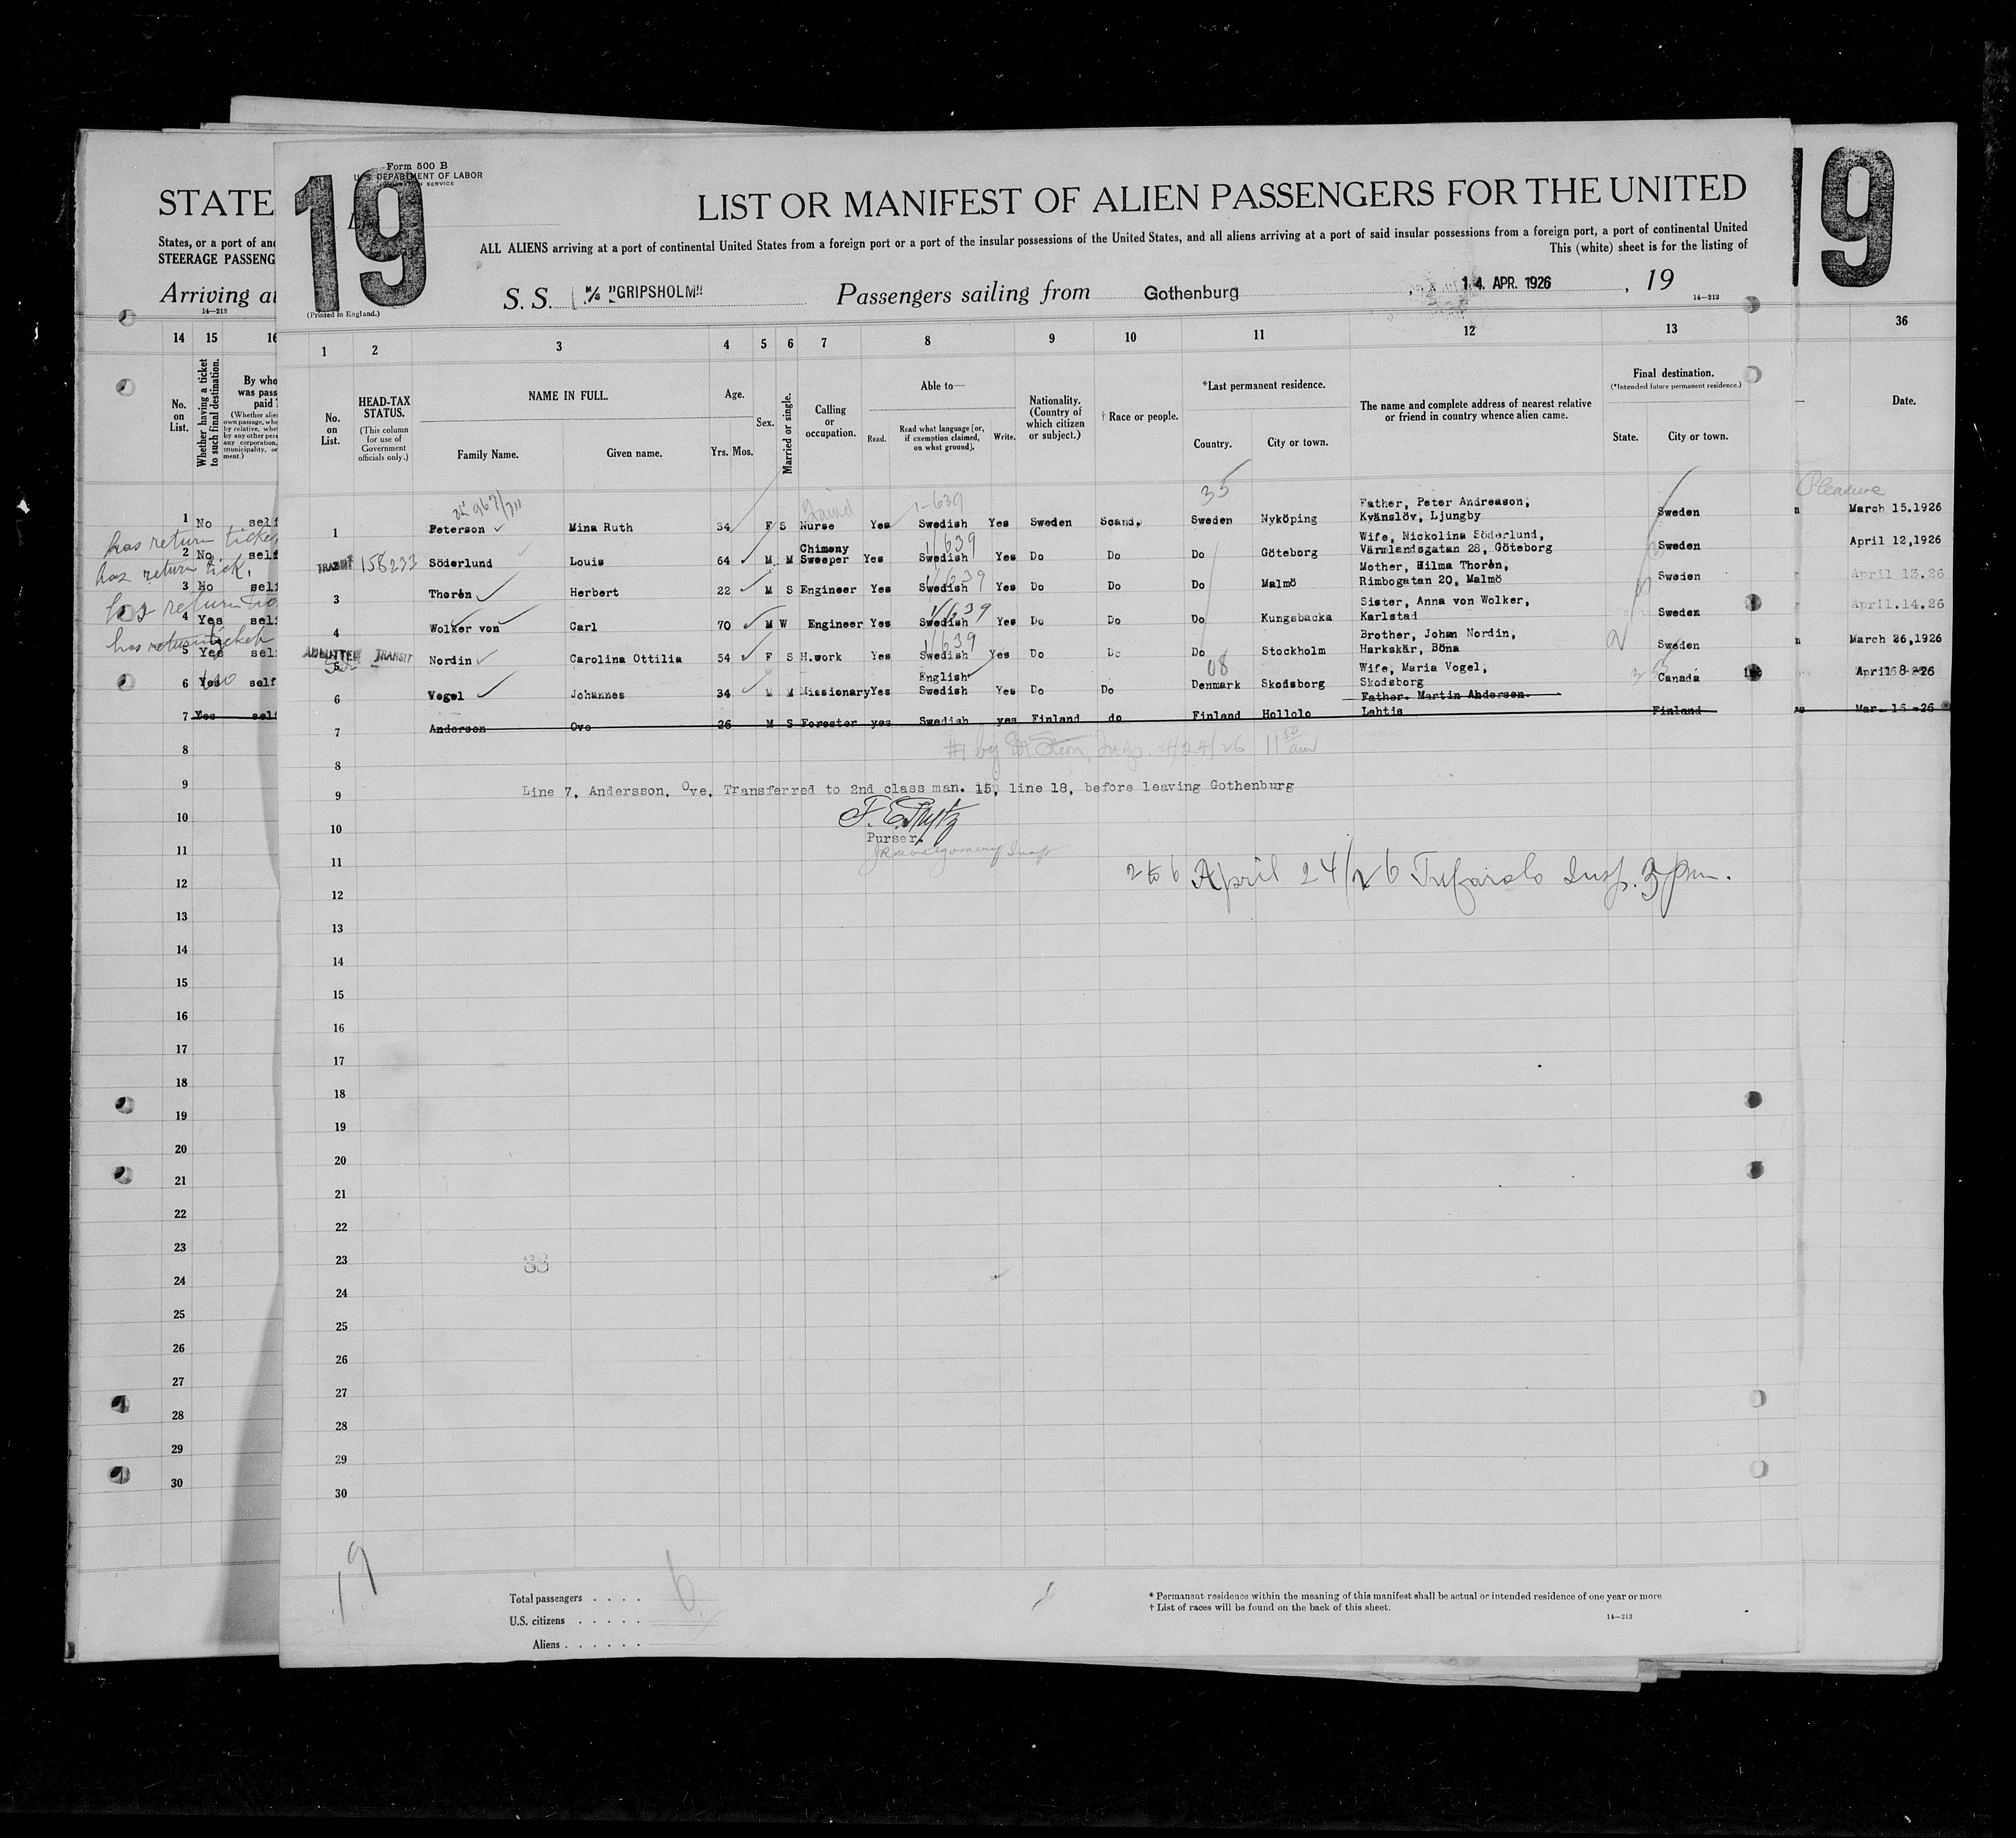 Form 500 B
U. S. DEPARTMENT OF LABOR
IMMIGRATION SERVICE
19
List
(Printed in England.)
LIST OR MANIFEST OF ALIEN PASSENGERS FOR THE UNITED
ALL ALIENS arriving at a port of continental United States from a foreign port or a port of the insular possessions of the United States, and all aliens arriving at a port of said insular possessions from a foreign port, a port of continental United
This (white) sheet is for the listing of
S. S. M/S "GRIPSHOLM" Passengers sailing from Gothenburg , 14. APR. 1926 , 19
14—213
1 2 3 4 5 6 7 8 9 10 11 12 13
No. on List.
HEAD-TAX STATUS.
(This column for use of Government officials only.)
NAME IN FULL.
Family Name. Given name.
Age.
Yrs. Mos.
Sex.
Married or single.
Calling or occupation.
Able to—
Read. Read what language [or, if exemption claimed, on what ground]. Write.
Nationality. (Country of which citizen or subject.)
† Race or people.
*Last permanent residence.
Country. City or town.
The name and complete address of nearest relative or friend in country whence alien came.
Final destination.
(*Intended future permanent residence.)
State. City or town.
35
1-639
1 Peterson Mina Ruth 34 F S Nurse Yes Swedish Yes Sweden Scand. Sweden Nyköping Father, Peter Andreason, Kvänslöv, Ljungby Sweden
1/639
2 TRANSIT 158233 Söderlund Louis 64 M M Chimeny Sweeper Yes Swedish Yes Do Do Do Göteborg Wife, Nickolina Söderlund, Värmlandsgatan 28, Göteborg Sweden
1/639
3 Thorén Herbert 22 M S Engineer Yes Swedish Yes Do Do Do Malmö Mother, Hilma Thorén, Rimbogatan 20, Malmö Sweden
1/639
4 Wolker von Carl 70 M W Engineer Yes Swedish Yes Do Do Do Kungsbacka Sister, Anna von Wolker, Karlstad Sweden
1/639
5 ADMITTED TRANSIT Nordin Carolina Ottilia 54 F S H.work Yes Swedish Yes Do Do Do Stockholm Brother, Johan Nordin, Harkskär, Böna Sweden
08
6 Vogel Johannes 34 M M Missionary Yes English Swedish Yes Do Do Denmark Skodsborg Wife, Maria Vogel, Skodsborg Canada
7 Anderson Ove 26 M S Forester yes Swedish yes Finland do Finland Hollolo Father. Martin Andersen. Lahtis Finland
8
9 Line 7, Andersson, Ove, Transferred to 2nd class man. 15, line 18, before leaving Gothenburg
10
Purser.
11
2 to 6 April 24/26 Insp. 3 pm.
12
13
14
15
16
17
18
19
20
21
22
23
33
24
25
26
27
28
29
30
19
Total passengers . . . . 6
U.S. citizens . . . . .
Aliens . . . . . .
* Permanent residence within the meaning of this manifest shall be actual or intended residence of one year or more
† List of races will be found on the back of this sheet.
14—213
STATE
States, or a port of an
STEERAGE PASSENG
Arriving at
14—213
14 15 16
No. on List.
Whether having a ticket to such final destination.
By who
was pass
paid?
1 No self
has return ticket
2 No self
has return tick.
3 No self
has return
4 Yes self
has return ticket
5 Yes sel
6 Yes self
7 Yes self
8
9
10
11
12
13
14
15
16
17
18
19
20
21
22
23
24
25
26
27
28
29
30
19
36
Date.
Pleasure
March 15.1926
April 12,1926
April 13.26
April.14.26
March 26,1926
April 8-26
Mar- 16 -26